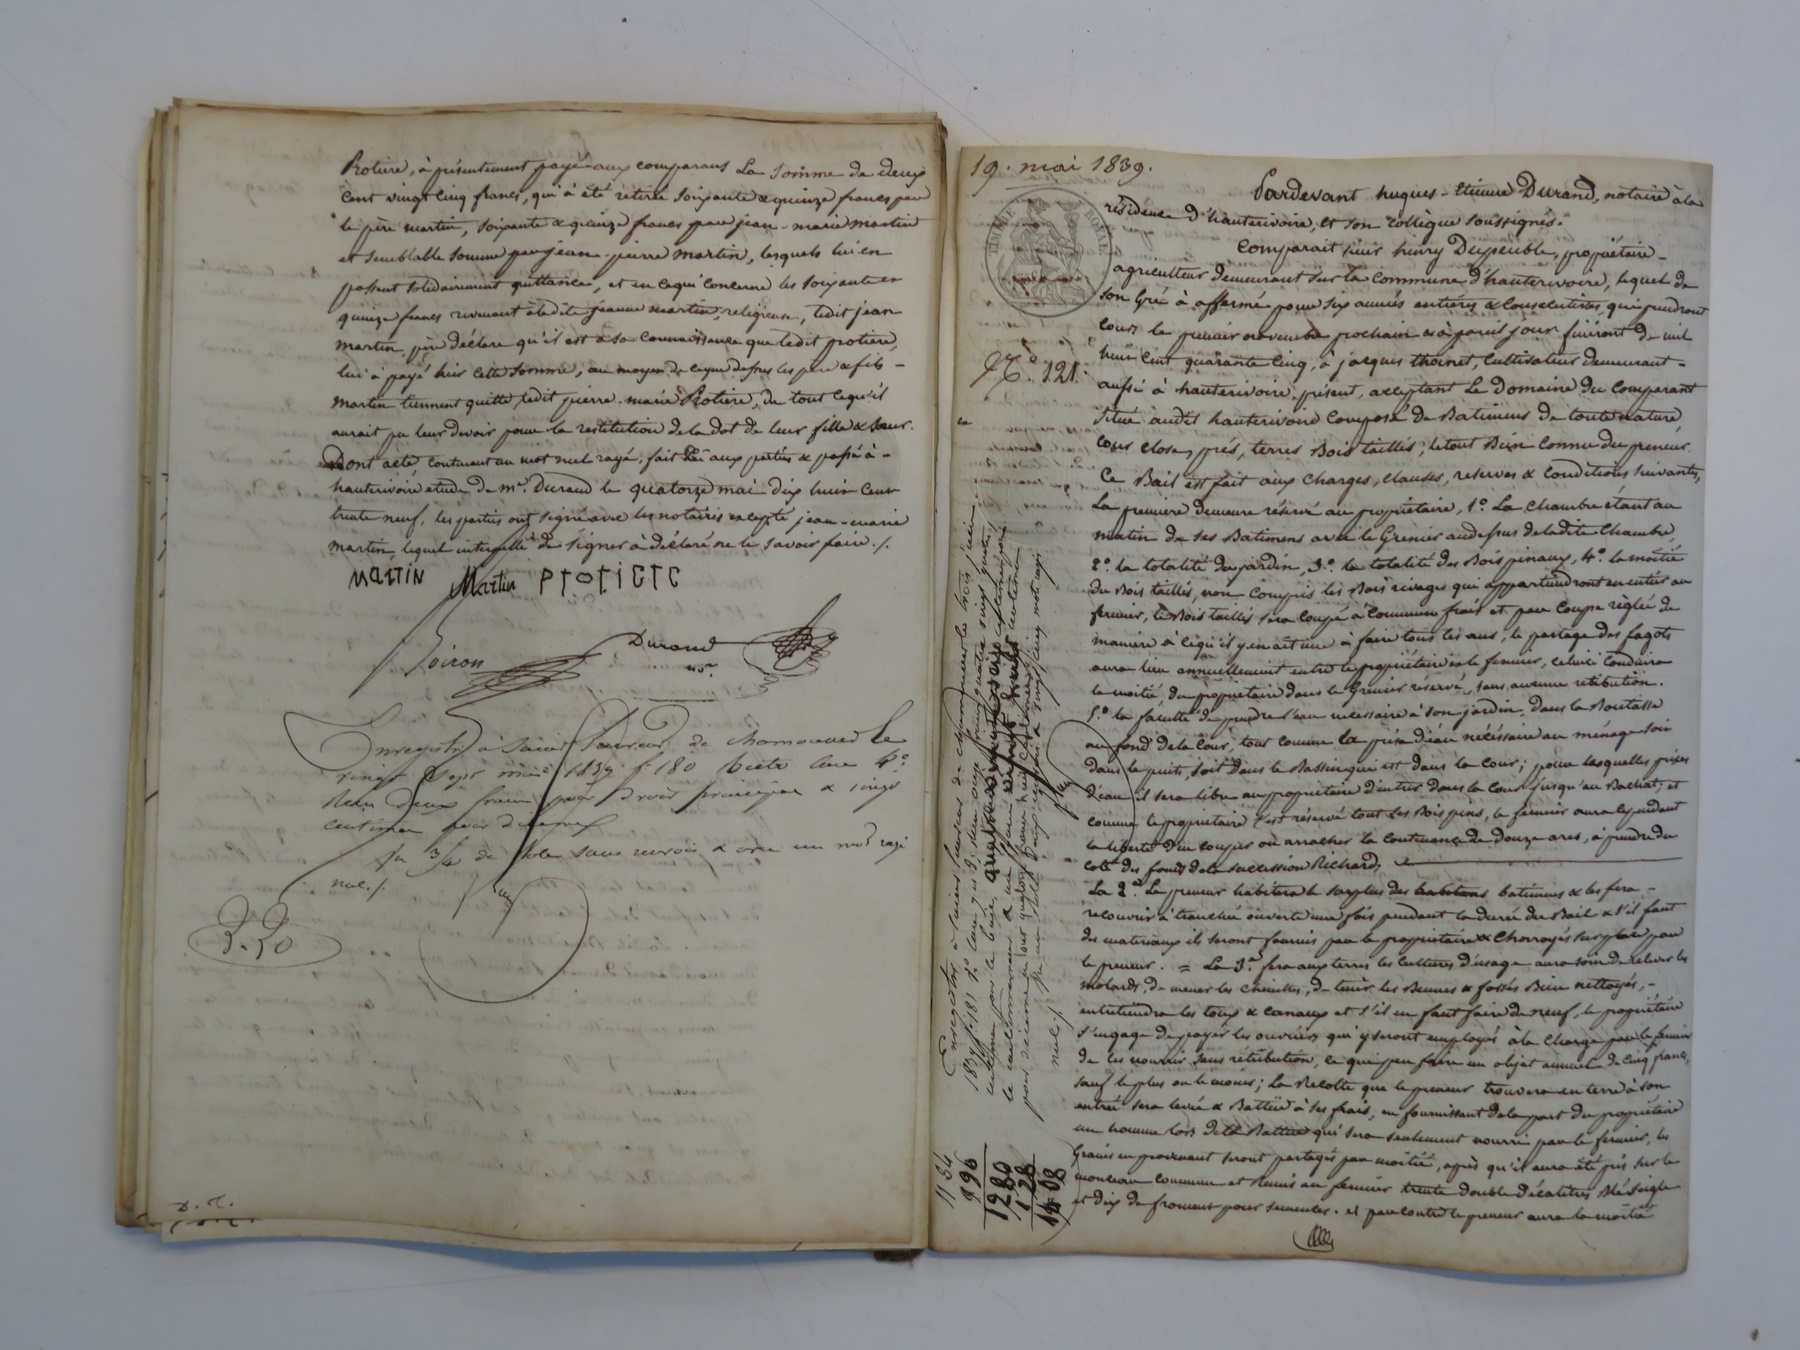 Protiere, à présentement payé aux comparans La somme de deux
cent vingt cinq francs, qui à été retirée soixante & quinze francs par
le père martin, soixante & quinze francs par jean-marie martin
et semblable somme par jean-pierre martin, lesquels lui en
passent solidairement quittance, et en cequi concerne les soixante et
quinze francs revenant à ladite jeanne martin, religieuse, ledit jean
martin père déclare qu'il est à sa connaissance que ledit protiere,
lui à payé hier cette somme; au moyen de ceque dessus les père & fils
martin tiennent quitte ledit pierre-marie Protiere, de tout cequ'il
aurait pu leur devoir pour la restitution de la dot de leur fille & sœur.
Dont acte, contenant un mot nul rayé, fait Lu aux parties & passé à
hauterivoire etude de me. Durand le quatorze mai dix huit cent
trente neuf, les parties ont signé avec les notaires excepté jean-marie
martin, lequel interpellé de signer à déclaré ne le savoir faire ./.
MARTIN Martin PrOTiERE
Loiron Durand
nore.
Enregistré à Saint Laurent de Chamousset le
vingt sept mai 1839 f. 180 Recto Case 4e
Reçu deux francs pour droit principal & vingt
centimes pour decime
nul ./.
2.20
D. d.
19. mai 1839.
Pardevant hugues-Etienne Durand, notaire à la
résidence d'hauterivoire, et son collègue soussignés.
TIMBRE ROYAL
Comparait sieur henry Duperible, propriétaire
agriculteur demeurant sur la commune d'hauterivoire, lequel de
son Gré à affermé pour six années entières & Consécutives, qui prendront
cours le premier novembre prochain & à pareil jour finiront de mil
No. 121.
huit cent quarante cinq, à jacques thoinet, Cultivateur demeurant
aussi à hauterivoire, présent, acceptant Le Domaine du Comparant
situé audit hauterivoire composé de Batimens de toute nature
cour close, prés, terres Bois taillis; letout Bien connu du preneur.
Ce Bail est fait aux charges, clauses, reserves & conditions suivantes,
La première demeure réservé au propriétaire, 1o. La chambre étant au
matin de ses Batimens avec le Grenier audessus de ladite Chambre,
2o. la totalité du jardin, 3o. la totalité des Bois pinaux, 4o. la moitié
du Bois taillis, non compris les Bois rivages qui appartiendront en entier au
fermier, le Bois taillis sera coupé à commun frais et par coupe règlée de
manière à cequ'il y en ait une à faire tous les ans, le partage des fagots
aura lieu annuellement entre le propriétaire & le fermier, celuici Conduira
la moitié du propriétaire dans le Grenier réservé, sans aucune rétribution.
5o. la faculté de prendre l'eau nécessaire à son jardin, dans la Boutasse
au fond de la cour, tout comme la prise d'eau nécéssaire au ménage soit
dans le puits, soit dans le Bassin qui est dans la cour; pour lesquelles prises
d'eau il sera libre au propriétaire d'entrer dans la Cour jusqu'au Bachat; et
comme le propriétaire s'est réservé tout les Bois pins, le fermier aura cependant
la liberté d'en couper ou arracher la contenance de douze ares, à prendre du
coté des fonds de la succession Richard;
La 2e. Le preneur habitera le surplus des habitans batimens & les fera
recouvrir à tranchée ouverte une fois pendant la durée du Bail & s'il faut
des materiaux ils seront fournis par le propriétaire & Charroyés sur place par
le preneur. = La 3e. fera aux terres les cultures d'usage aura soin de relever les
molards, de mener les chenettes, de tenir les Bennes & fossés Bien nettoyés,
entretiendra les toits & Canaux et s'il en faut faire de neuf, le propriétaire
s'engage de payer les ouvriers qui y seront employés à la Charge par le fermier
de les nourrir sans rétribution, ce qui peu faire un objet annuel de cinq francs,
sauf le plus ou le moins; La Récolte que le preneur trouvera en terre à son
entrée sera levée & Battue à ses frais, en fournissant de la part du propriétaire
un homme lors de la Battue qui sera seulement nourri par le fermier, les
Grains en provenant seront partagés par moitié, après qu'il aura été pris sur le
monceau commun et remis au fermier trente double Décalitres Blé Seigle
et dix de froment pour semences. et par contre le preneur aura la moitié
Enregistré à Saint Laurent de Chamousset le trois juin
nul ./.
1184
996
1280
128
1408